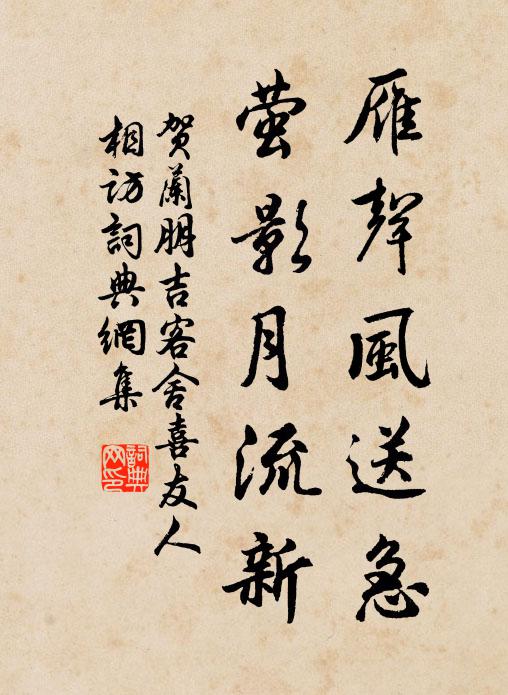 雁聲風送急
螢影月流新
贺蘭朋吉客舍喜友人
相訪詞典網集
詞典網印